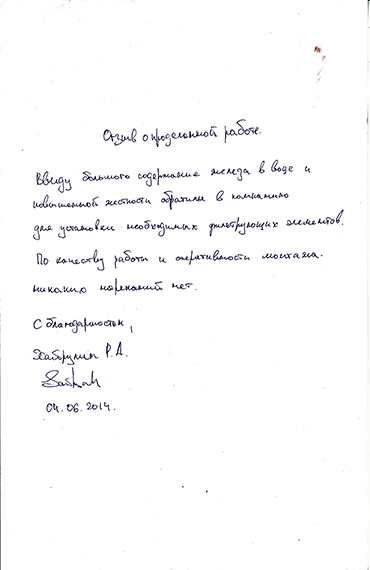 Отзыв о проделанной работе.
Ввиду большого содержание железа в воде и
повышенной жесткости обратились в компанию
для установки необходимых фильтрующих элементов.
По качеству работы и оперативности монтажа
никаких нареканий нет.
С благодарностью,
Хайбрулин Р.А.
04.06.2014.